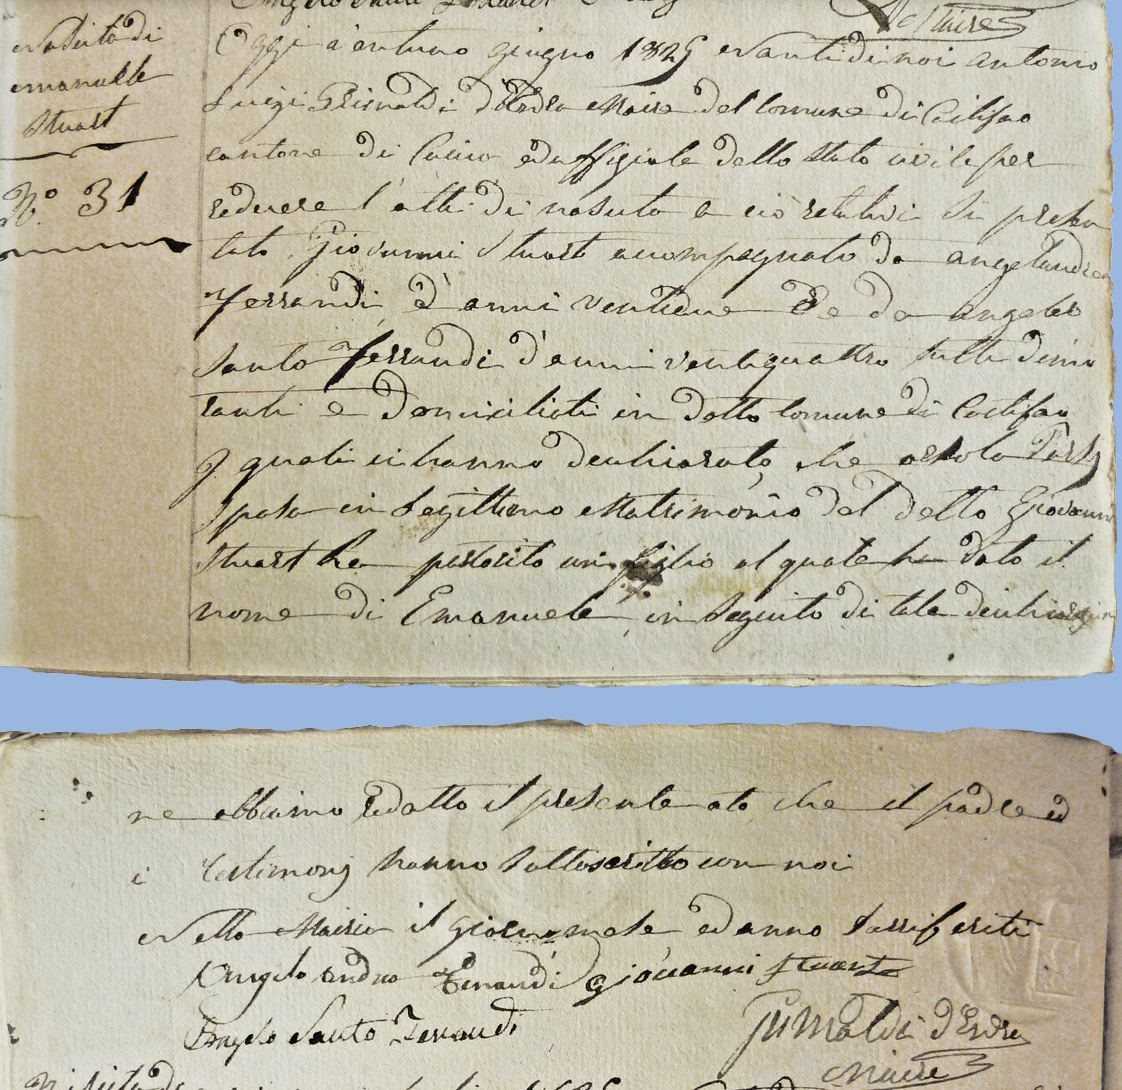 Maire
Nascita di
emanuelle
Stuart
N.º 31
Oggi a'ventuno giugno 1825 avanti di noi Antonio
Luigi Grimaldi d'Esdra Maire del Comune di Castifao
cantone di Caccia ed uffiziale dello Stato civile per
redigere l'atti di nascita e ciò relativi si presen
tato Giovanni Stuart accompagnato da angelandrea
Ferrandi d'anni ventidue e da angelo
Santo Ferrandi d'anni ventiquattro tutti dimo
ranti e domiciliati in detto Comune di Castifao
I quali ci hanno dichiarato, che
Sposa in Legittimo Matrimonio del detto Giovanni
Stuart ha partorito un figlio al quale ha dato il
nome di Emanuele in seguito di tale dichiarazio
ne abbiamo redatto il presente ato che il padre ed
i testimonj hanno sottoscritto con noi
Nella Mairia il giorno mese ed anno surriferiti
Angelo Andrea Ferrandi Giovanni Stuart
Angelo Santo Ferrandi
Grimaldi d'Esdra
Maire